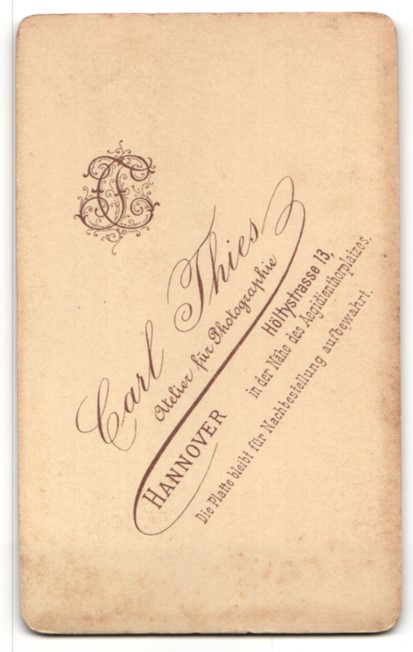 CT
Carl Thies
Atelier für Photographie
HANNOVER
Höltystrasse 13,
in der Nähe des Aegidienthorplatzes.
Die Platte bleibt für Nachbestellung aufbewahrt.